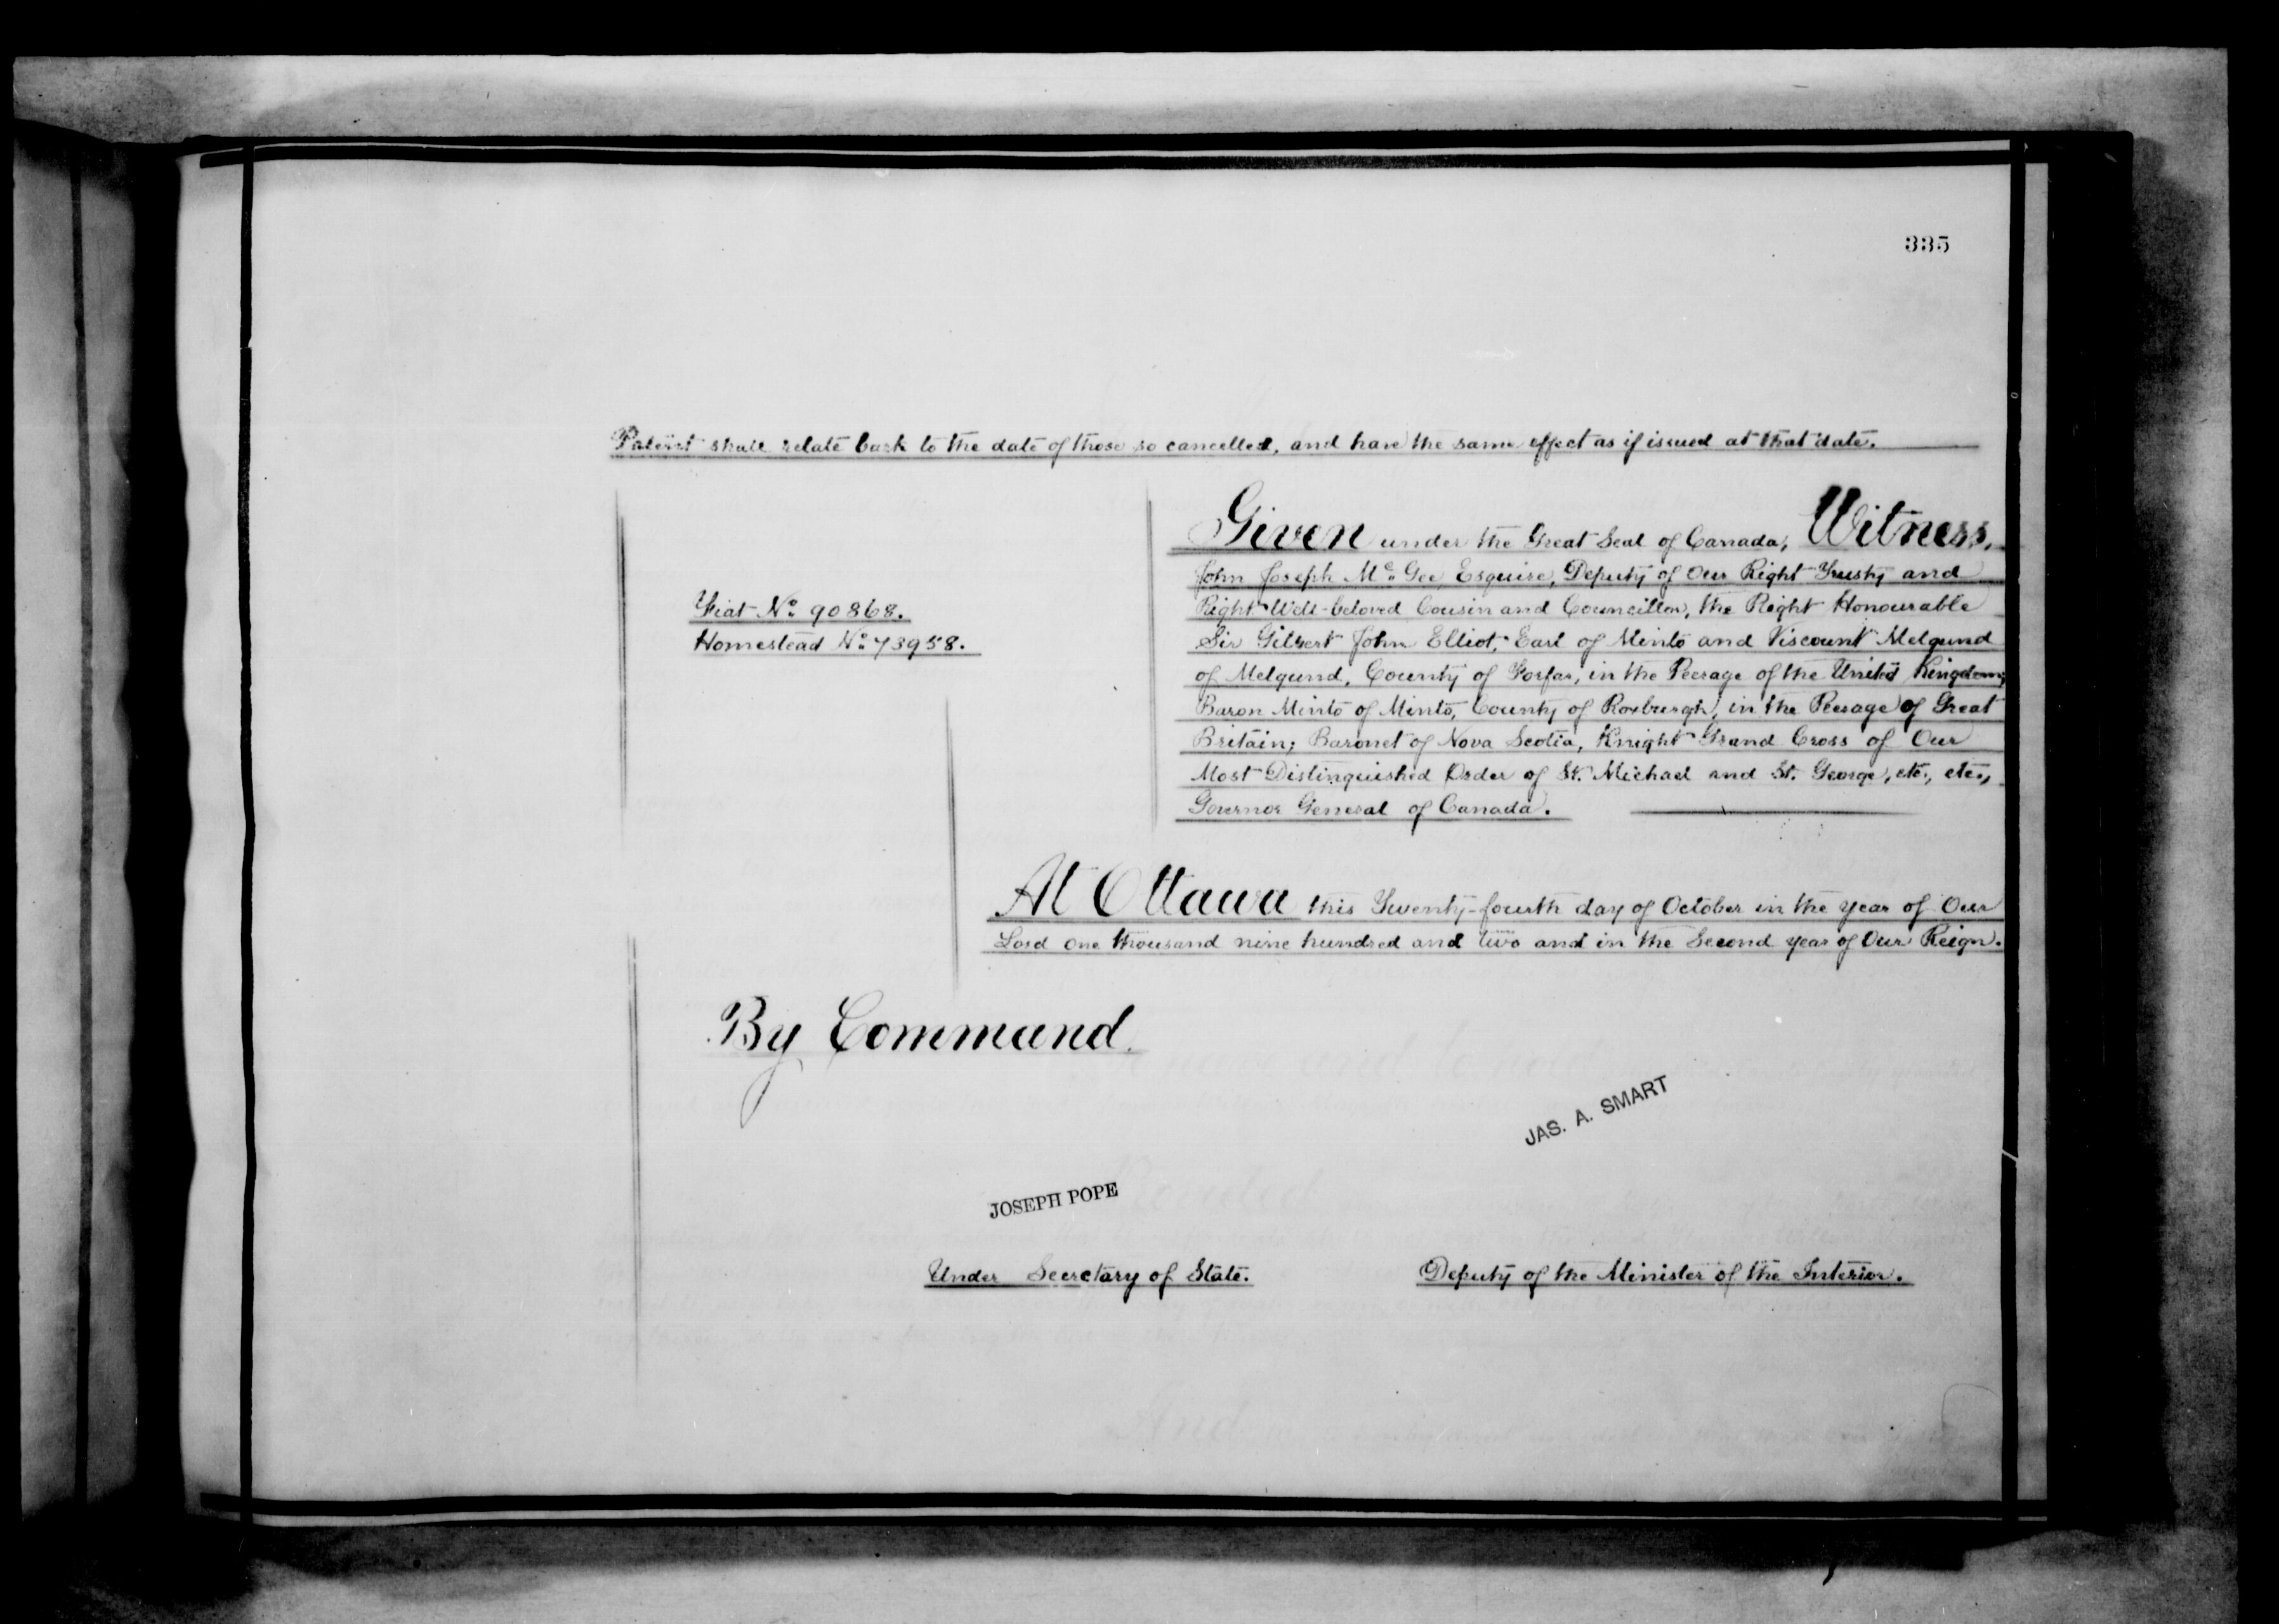 335
Patent shall relate back to the date of those so cancelled, and have the same effect as if issued at that date.
Given under the Great Seal of Canada; Witness,
John Joseph McGee, Esquire, Deputy of Our Right Trusty and
Right Well-beloved Cousin and Councillor, the Right Honourable
Sir Gilbert John Elliot, Earl of Minto and Viscount Melgund
of Melgund, County of Forfar, in the Peerage of the United Kingdom,
Baron Minto of Minto, County of Roxburgh, in the Peerage of Great
Britain; Baronet of Nova Scotia, Knight Grand Cross of Our
Most Distinguished Order of St. Michael and St. George, etc., etc.,
Governor General of Canada.
Fiat No. 90868.
Homestead No. 73958.
At Ottawa this Twenty-fourth day of October in the year of Our
Lord one thousand nine hundred and two and in the Second year of Our Reign.
By Command.
JAS. A. SMART
JOSEPH POPE
Under Secretary of State.
Deputy of the Minister of the Interior.